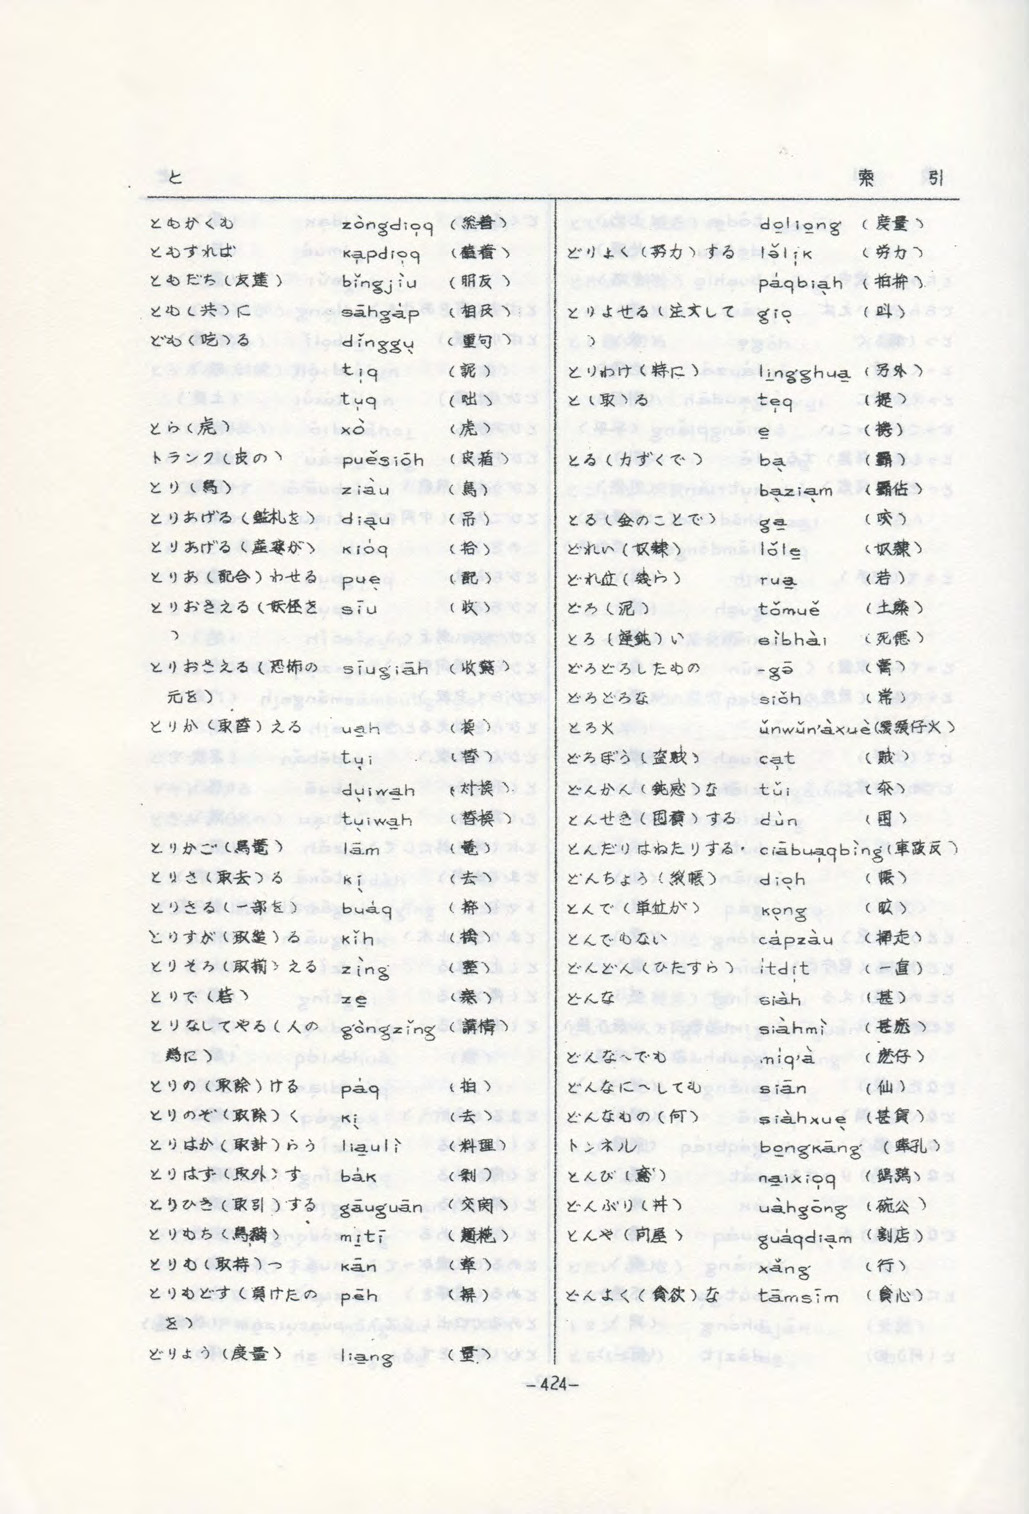 と
索 引
ともかくも zòngdiọq (総着)
ともすれば kạpdiọq
ともだち(友達) bǐngjìu (朋友)
とも(共)に sāhgáp (相及)
ども(吃)る dǐnggụ (重句)
tịq
tụq (咄)
とら(虎) xò (虎)
トランク(皮の) puěsiōh (皮箱)
とり(鳥) ziàu (鳥)
とりあげる(鑑札を) diạu (吊)
とりあげる(産婆が) kióq (拾)
とりあ(配合)わせる puẹ (配)
とりおさえる(妖怪を sīu (收)
)
とりおさえる(恐怖の sīugiāh (收驚)
元を)
とりか(取替)える uạh (換)
tụi (替)
dụiwạh (対換)
tụiwạh (替換)
とりかご(鳥篭) lām (篭)
とりさ(取去)る kị (去)
とりさる(一部を) buáq
とりすが(取縋)る kǐh
とりそろ(取揃)える zìng (整)
とりで(砦) ze̱ (寨)
とりなしてやる(人の gòngzǐng (講情)
為に)
とりの(取除)ける páq (拍)
とりのぞ(取除)く kị (去)
とりはか(取計)らう lia̱ulì (料理)
とりはず(取外)す bák (剥)
とりひき(取引)する gāuguān (交関)
とりもち(鳥黐) mi̱tī
とりも(取持)つ kān (牽)
とりもどす(負けたの pēh
を)
どりょう(度量) lia̱ng (量)
do̱lio̱ng (度量)
どりょく(努力)する lǒlịk (労力)
páqbiạh (拍拚)
とりよせる(注文して giọ (叫)
)
とりわけ(特に) li̱ngghua̱ (另外)
と(取)る tẹq (提)
e̱ (携)
とる(力ずくで) bạ (覇)
bạziạm (覇佔)
とる(金のことで) ga̱ (咬)
どれい(奴隷) lǒle̱ (奴隷)
どれ位(幾ら) rua̱ (若)
どろ(泥) tǒmuě (土糜)
とろ(遅鈍)い sìbhàı
どろどろしたもの -gō (膏)
どろどろな siǒh (常)
とろ火 ǔnwǔn'àxuè (緩緩仔火)
どろぼう(盗賊) cạt (賊)
どんかん(鈍感)な tǔi
とんせき(囤積)する dùn (囤)
とんだりはねたりする・ ciābuạqbìng (車跋反)
どんちょう(緞帳) diọh (帳)
とんで(単位が) kọng
とんでもない cápzàu (挿走)
どんどん(ひたすら) ítdịt (一直)
どんな siàh (甚)
siàhmì (甚麼)
どんな〜でも mìq'à (麼仔)
どんなに〜しても siān (仙)
どんなもの(何) siàhxuẹ (甚貨)
トンネル bo̱ngkāng
とんび(鳶) na̱ixịọq
どんぶり(丼) uàhgōng (碗公)
とんや(問屋) guáqdiạm (割店)
xǎng (行)
どんよく(貪欲)な tāmsīm (貪心)
-424-